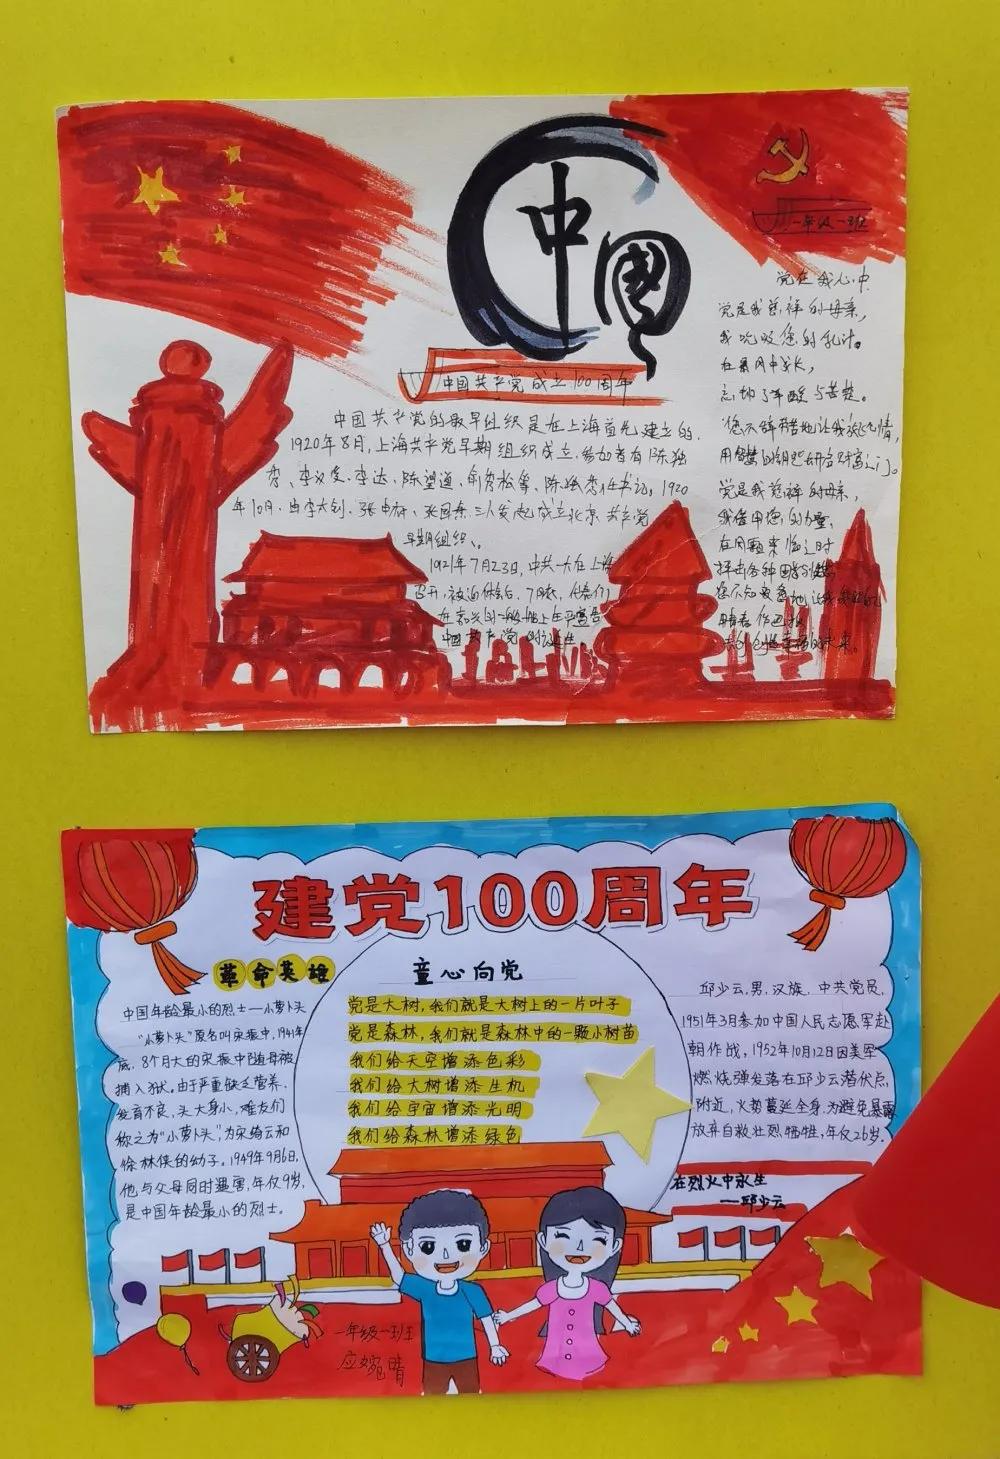 中國
一年级一班
中国共产党成立100周年
中国共产党的最早组织是在上海首先建立的.
1920年8月,上海共产党早期组织成立.参加者有陈独
秀、李汉俊、李达、陈望道、俞秀松等、陈独秀任书记。1920
年10月.由李大钊、张申府、张国焘三人发起成立北京共产党
早期组织、。
1921年7月23日,中共一大在上海
召开,
在嘉兴
中国共产党
党在我心中
党是我慈祥的母亲,
我吮吸您的乳汁。
在暴风中成长,
忘却了辛酸与苦楚。
党是我慈祥的母亲,
我借用您的力量,
在困难来临之时
建党100周年
革命英雄
中国年龄最小的烈士—小萝卜头
“小萝卜头”原名叫宋振中,1941年
底,8个月大的宋振中随母被
捕入狱。由于严重缺乏营养.
发育不良,头大身小,难友们
称之为“小萝卜头”,为宋绮云和
徐林侠的幼子。1949年9月6日,
他与父母同时遇害,年仅9岁,
是中国年龄最小的烈士。
童心向党
党是大树,我们就是大树上的一片叶子
党是森林,我们就是森林中的一颗小树苗
我们给天空增添色彩
我们给大树增添生机
我们给宇宙增添光明
我们给森林增添绿色
邱少云,男,汉族,中共党员,
1951年3月参加中国人民志愿军赴
朝作战,1952年10月12日因美军
燃烧弹发落在邱少云潜伏点
附近,火势蔓延全身,为避免暴露
放弃自救壮烈牺牲,年仅26岁.
在烈火中永生
——邱少云
一年级一班
应婉晴